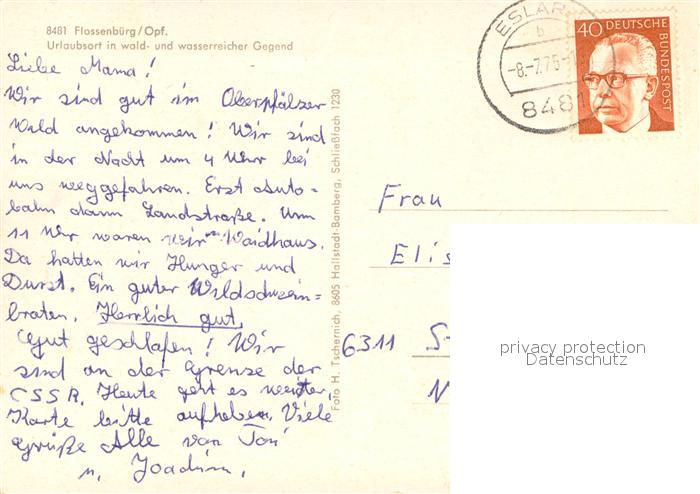 8481 Flossenbürg/Opf.
Urlaubsort in wald- und wasserreicher Gegend
Liebe Mama!
Wir sind gut im Oberpfälzer
Wald angekommen! Wir sind
in der Nacht um 4 Uhr bei
uns weggefahren. Erst Auto=
bahn dann Landstraße. Um
11 Uhr waren wir Waidhaus.
Da hatten wir Hunger und
Durst. Ein guter Wildschwein=
braten. Herrlich gut.
Gut geschlafen! Wir
sind an der Grenze der
CSSR. Heute geht es weiter.
Karte bitte aufheben. Viele
Grüße Alle von Toni
u. Joachim.
Foto H. Tschernich, 8605 Hallstadt-Bamberg, Schließfach 1230
ESLAR
b
-8.-7.75-
8481
40 DEUTSCHE
BUNDESPOST
Frau
Elis
6311 S
N
privacy protection
Datenschutz